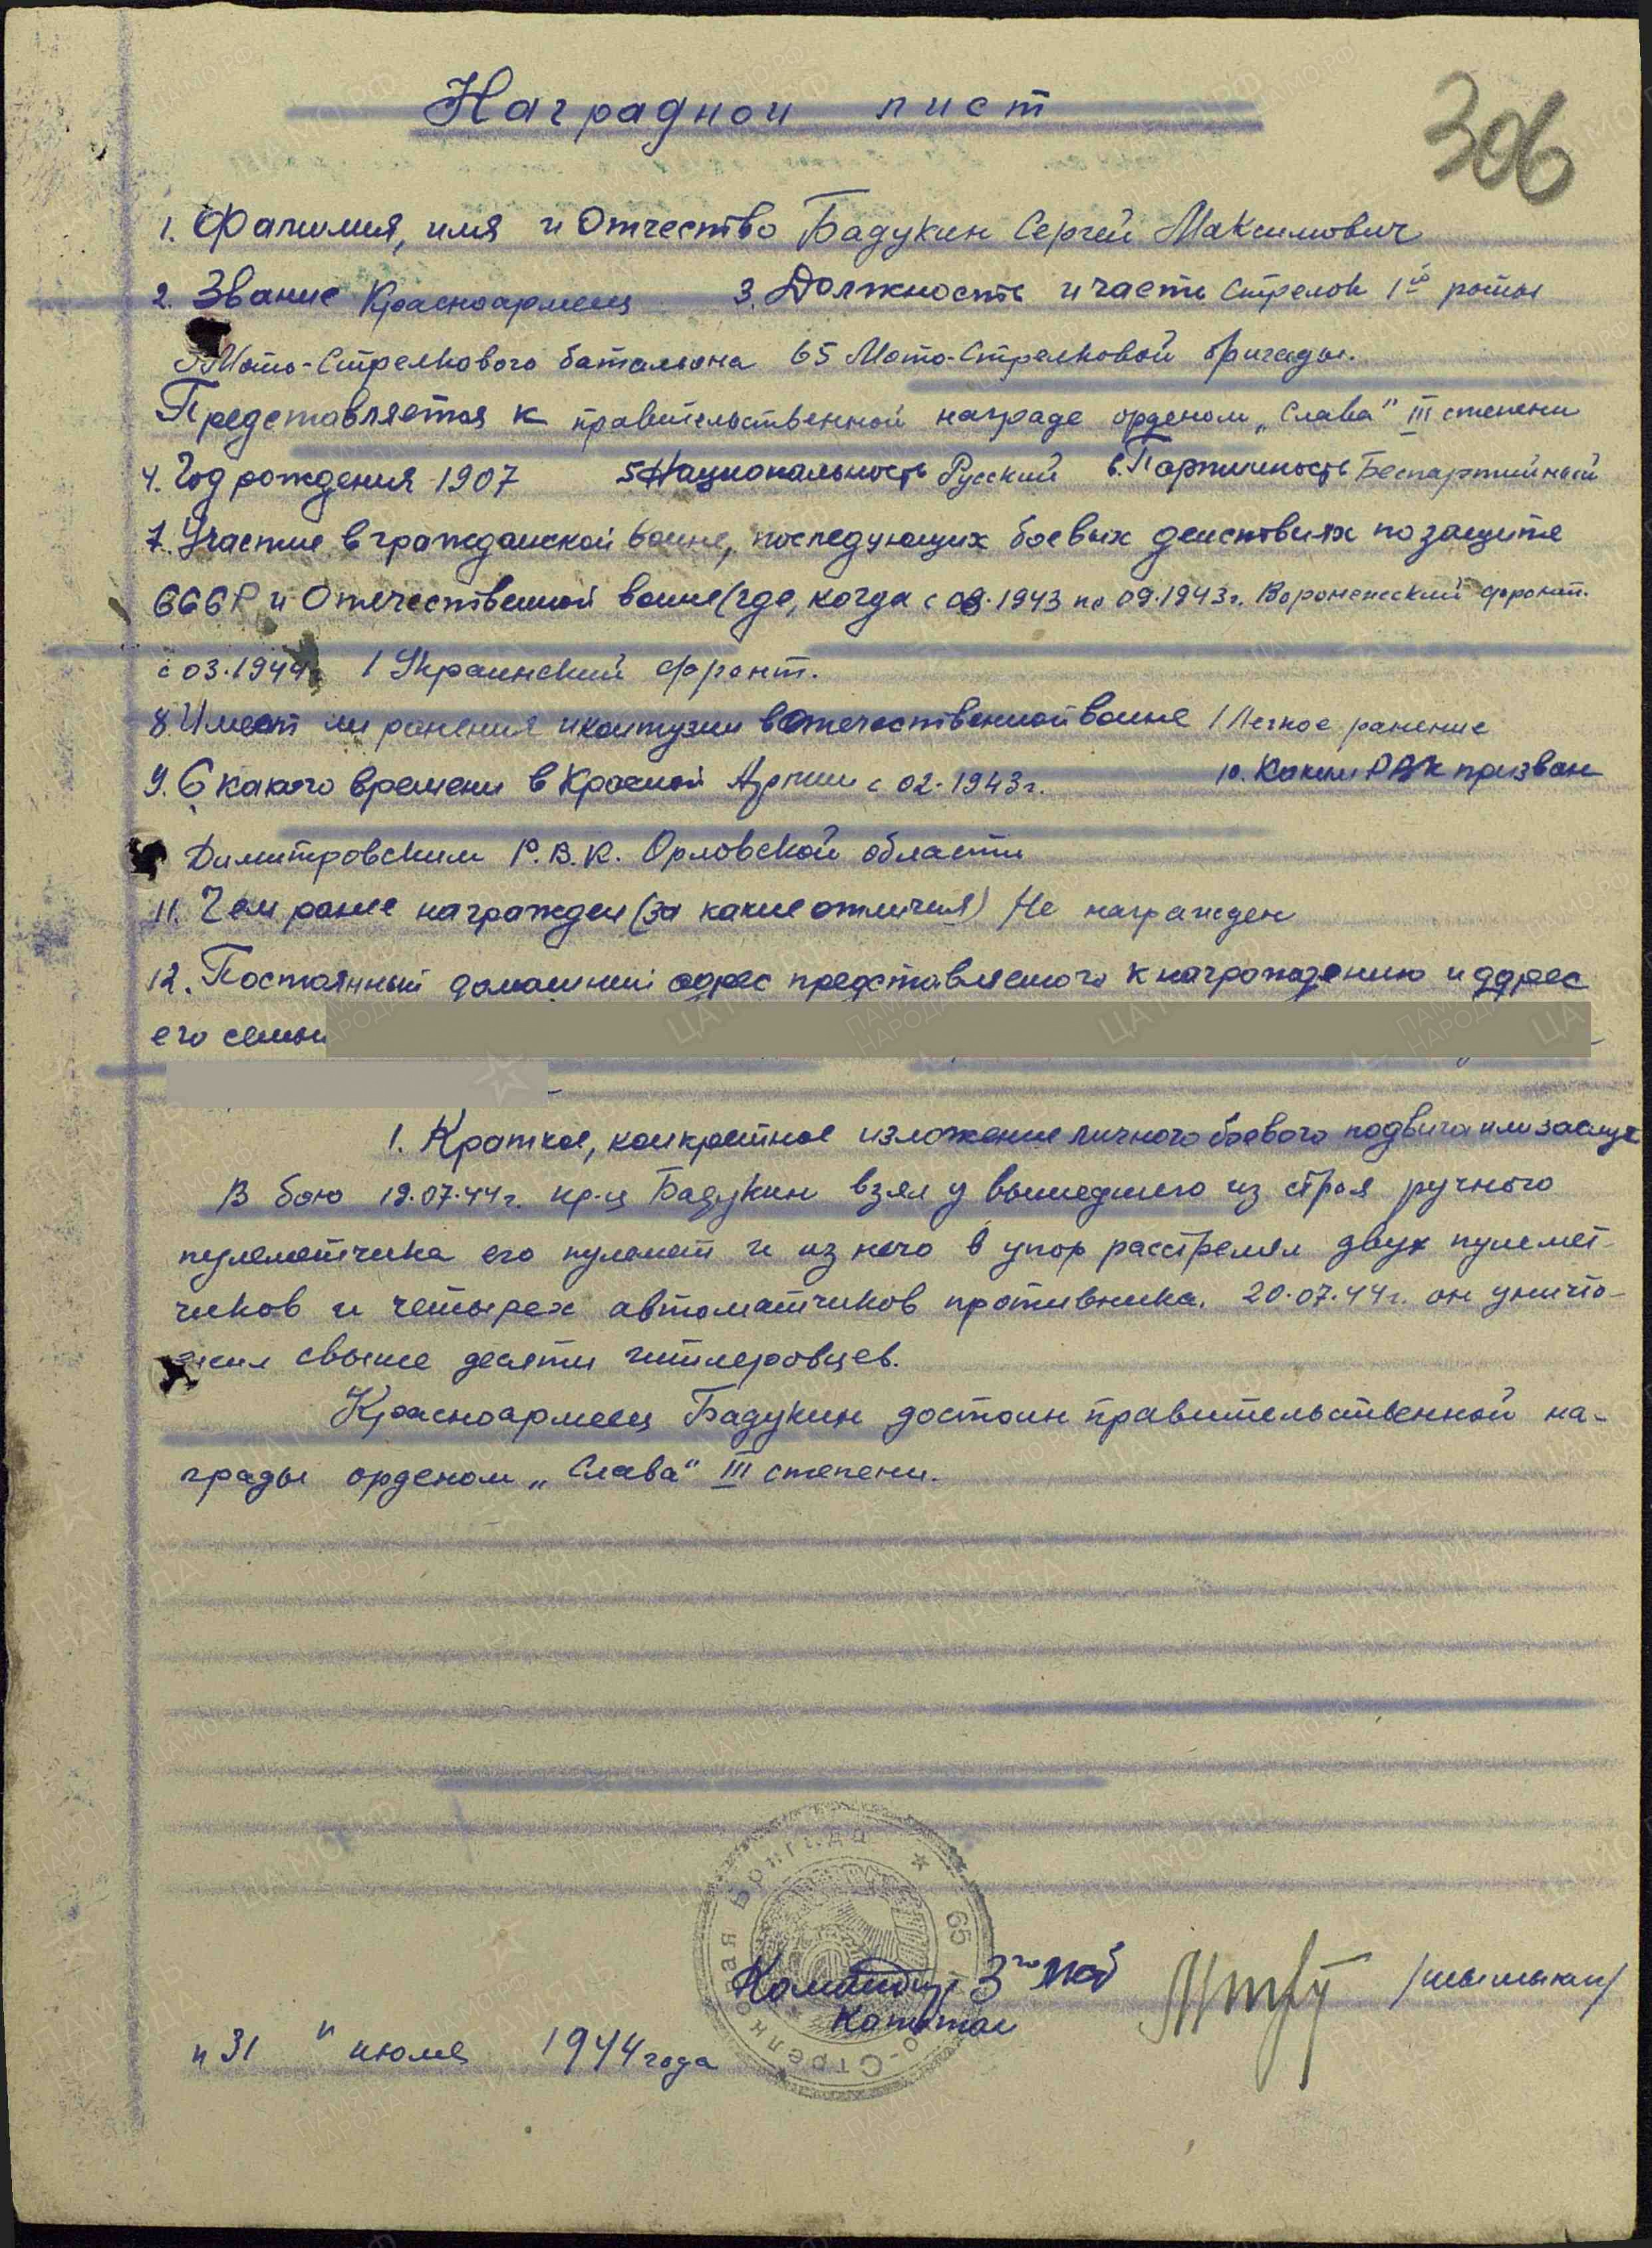 306
Наградной лист
1. Фамилия, имя и Отчество Бадукин Сергей Максимович
2. Звание Красноармеец 3. Должность и часть Стрелок 1ой роты
Мото-Стрелкового батальона 65 Мото-Стрелковой бригады.
Представляется к правительственной награде орденом „Слава" III степени
4. Год рождения 1907 5 Национальность Русский 6. Партийность Беспартийный
7. Участие в гражданской воине, последующих боевых действиях по защите
СССР и Отечественной воине (где, когда с 08.1943 по 09.1943г. Воронежский фронт.
с 03.1944г 1 Украинский фронт.
8. Имеет ли ранения и контузии в отечественной воине 1 Легкое ранение
9. С какого времени в Красной Армии с 02.1943г. 10. Каким РВК призван
Димитровским Р.В.К. Орловской области
11. Чем ранее награжден (за какие отличия) Не награжден
12. Постоянный домашний адрес представляемого к награждению и адрес
его семьи
1. Краткое, конкретное изложение личного боевого подвига или заслуг
В бою 19.07.44г. кр-ц Бадукин взял у вышедшего из строя ручного
пулеметчика его пулемет и из него в упор расстрелял двух пулемет-
чиков и четырех автоматчиков противника. 20.07.44г. он уничто-
жил свыше десяти гитлеровцев.
Красноармеец Бадукин достоин правительственной на-
грады орденом „Слава" III степени.
Командир 3го МСБ
Капитан
"31" июля 1944 года
65 Мото-Стрелковая Бригада